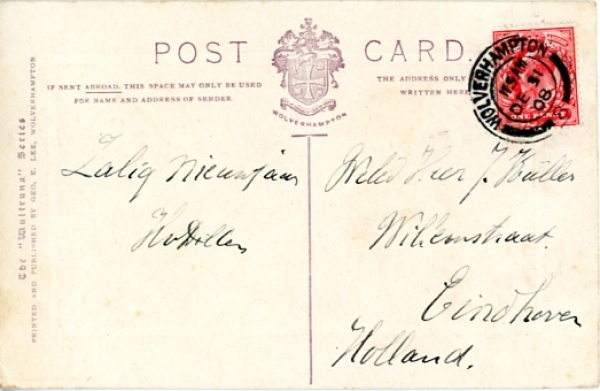 POST CARD.
IF SENT ABROAD, THIS SPACE MAY ONLY BE USED
FOR NAME AND ADDRESS OF SENDER.
THE ADDRESS ONLY
WRITTEN HERE
WOLVERHAMPTON
WOLVERHAMPTON
DE 31
08
ONE PENNY
The "Wulfruna" Series
PRINTED AND PUBLISHED BY GEO. E. LEE, WOLVERHAMPTON
Zalig Nieuwjaar
Heer J. Küller
Willemstraat.
Eindhoven
Holland.